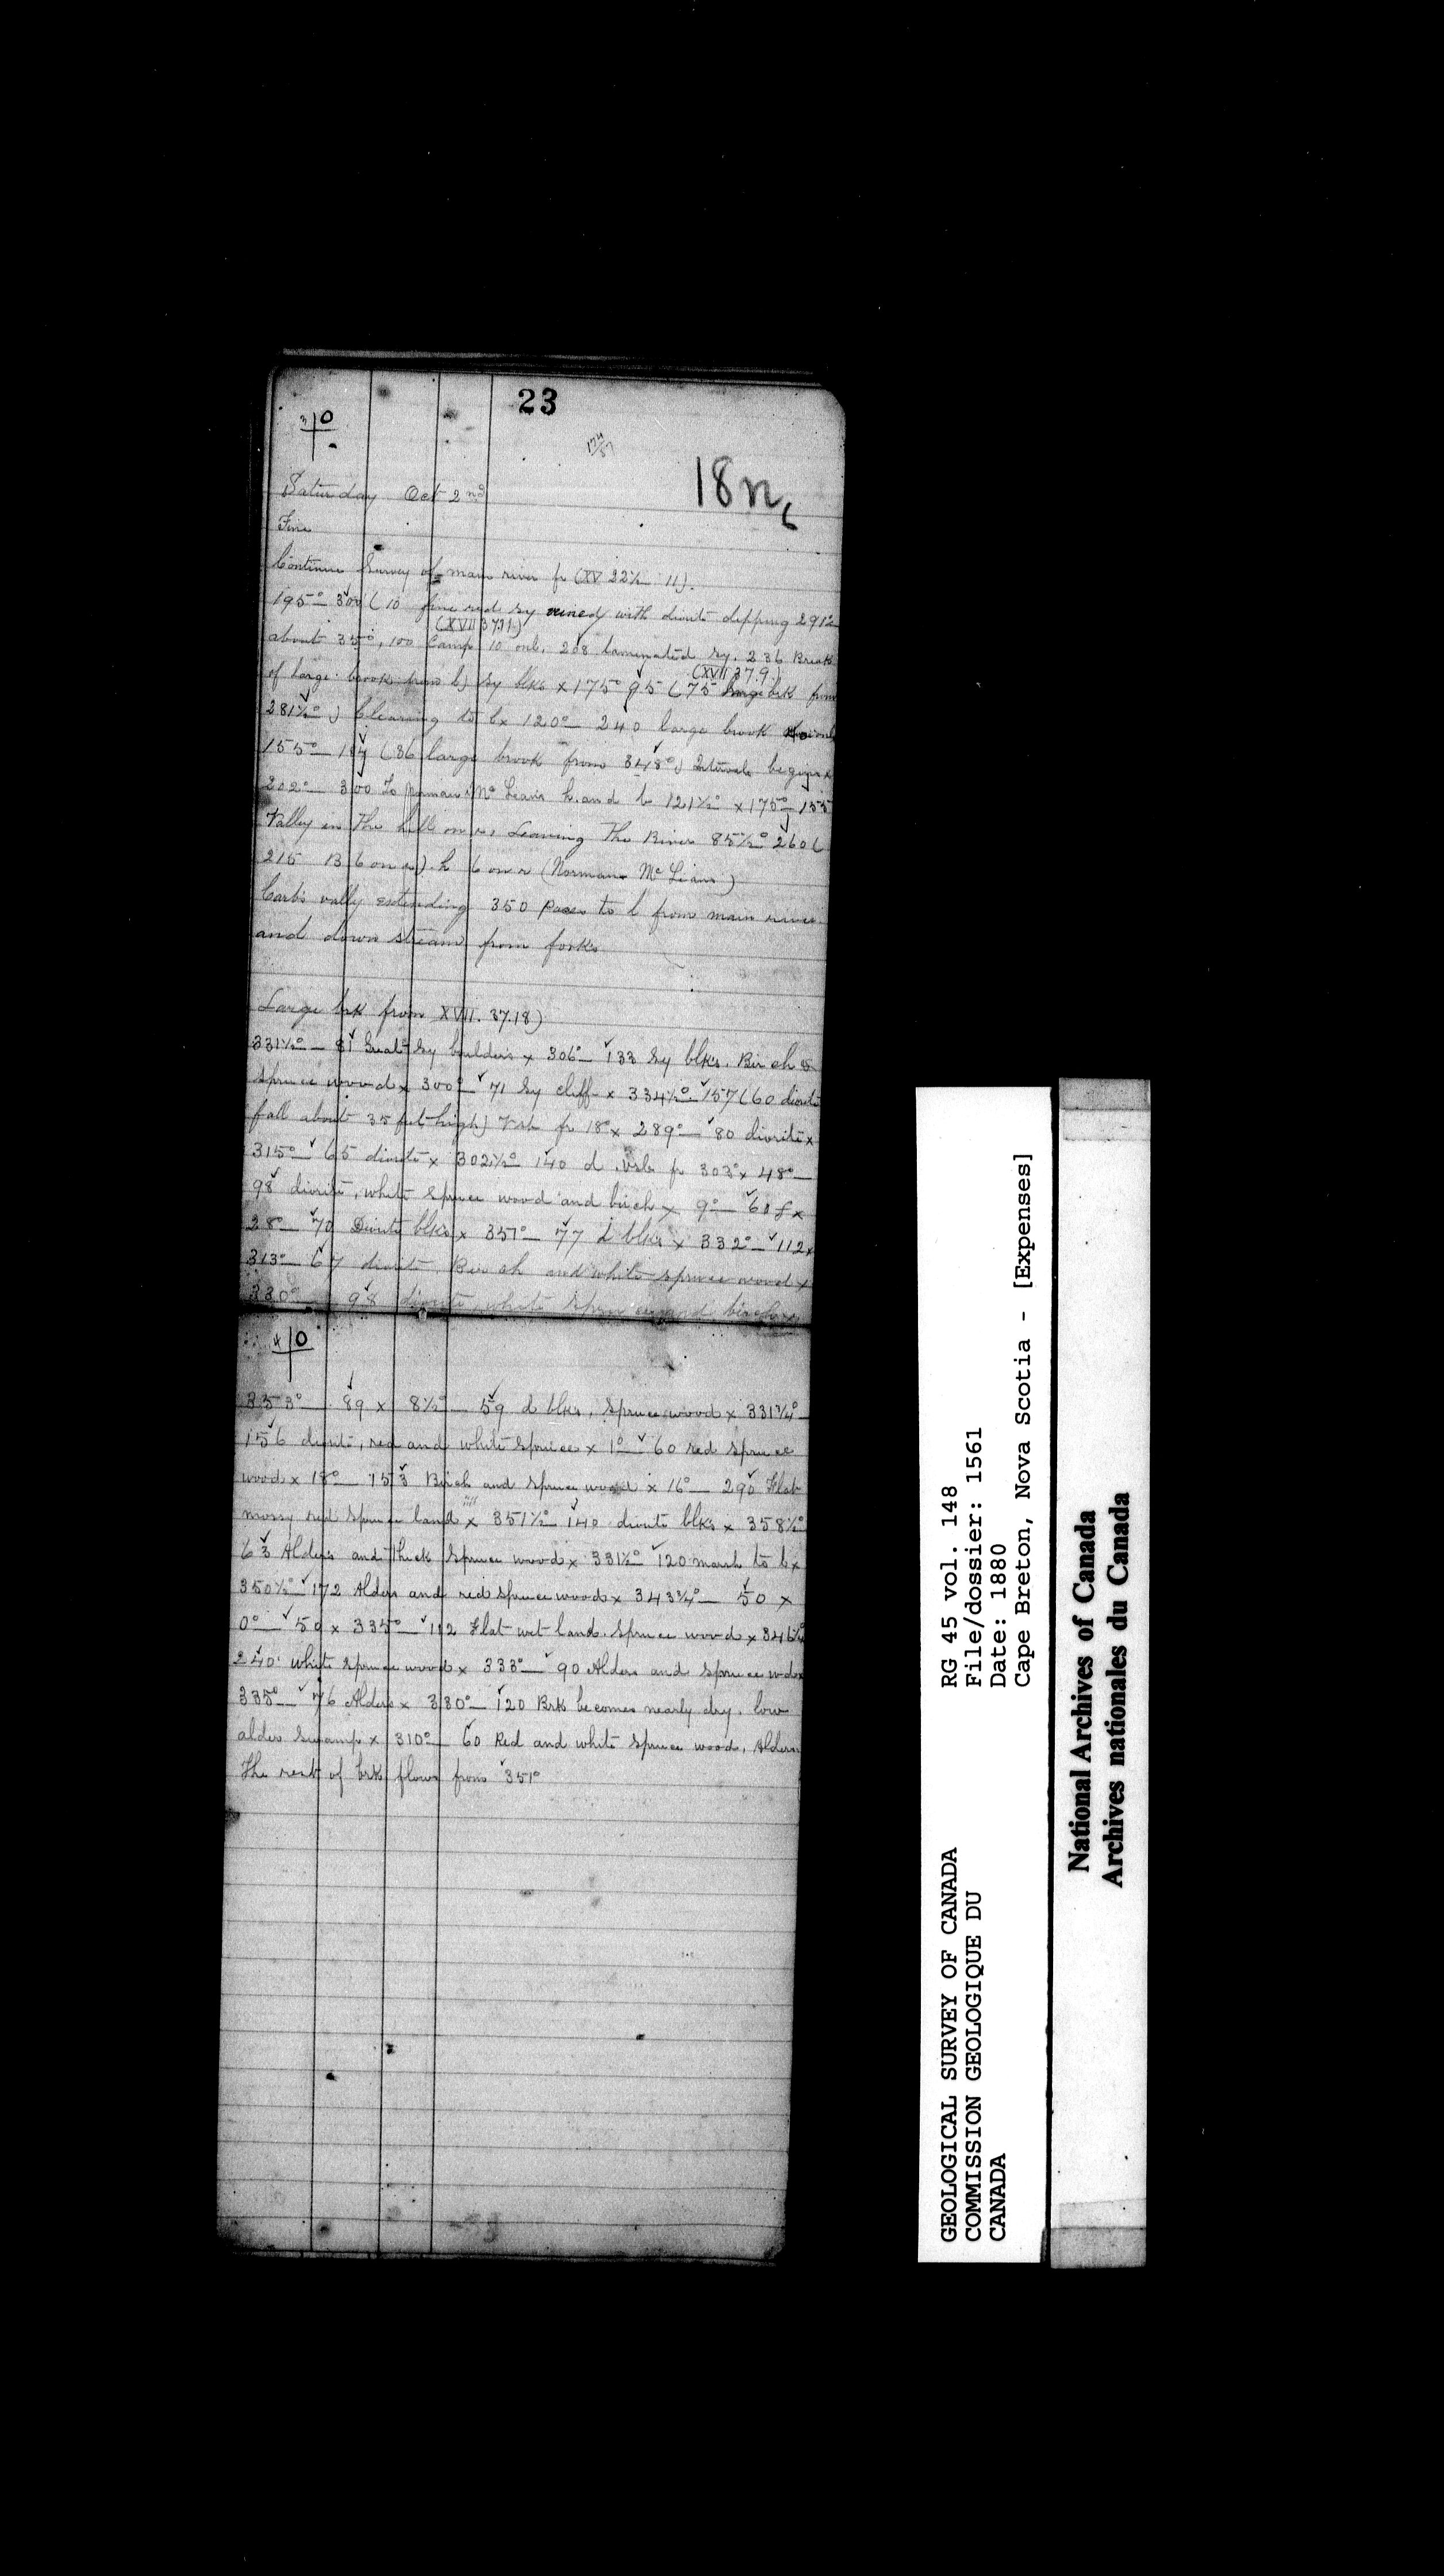 23
3 0
174/87
18n6
Saturday Oct 2nd
Fine
Continue Survey of main river fr (XV 22½ 11).
195°— 300 (10 fine red sy veined with diorite dipping 291½
(XVII 37.11)
about 35°, 100 Camp 10 on l. 208 laminated sy. 236 Break
(XVII 37.9)
of large brook from l) sy blks x 175° 95 (75 large brk from
281½°) Clearing to l x 120°— 240 large brook
155°— (36 large brook from 348°) Intervale begins x
202°— 300 To Norman Mc Leans h. and b 121½° x 175°— 155
Valley in the hill on r. Leaving the River 85½° 260 (
215 B 6 on r). h 6 on r (Norman Mc Leans)
Carb. vally extending 350 paces to l from main river
and down stream from forks
Large brk from XVII. 37.18)
331½°— 81 Great sy boulders x 306°— 133 sy blks. Birch &
spruce wood x 300°— 71 sy cliff x 334½°— 157 (60 diorite
fall about 35 feet high) Vsb fr 18° x 289°— 80 diorite x
315°— 65 diorite x 302½° 140 d. vsb fr 303° x 48°—
98 diorite, white spruce wood and birch x 9°— 60 f x
28°— 70 Diorite blks x 357°— 77 d blks x 332°— 112 x
313°— 67 diorite, Birch and white spruce wood x
330°— 98 diorite white spruce and birch x
4 0
353°— 89 x 8½°— 59 d blks, spruce wood x 331¾°—
156 diorite, red and white spruce x 1°— 60 red spruce
wood x 18°— 153 Birch and spruce wood x 16°— 290 Flat
mossy red spruce land x 351½°— 140 diorite blks x 358½°
63 Alders and thick spruce wood x 331½° 120 marsh to l x
350½°— 172 Alders and red spruce wood x 343¾°— 50 x
0°— 50 x 335°— 112 Flat wet land. spruce wood x 346¼
240 white spruce wood x 333°— 90 Alders and spruce wd x
335°— 76 Alders x 330°— 120 Brk becomes nearly dry. low
alder swamp x 310°— 60 Red and white spruce wood, Alders
The rest of brk flows from 351°
GEOLOGICAL SURVEY OF CANADA
COMMISSION GEOLOGIQUE DU
CANADA
RG 45 vol. 148
File/dossier: 1561
Date: 1880
Cape Breton, Nova Scotia - [Expenses]
National Archives of Canada
Archives nationales du Canada